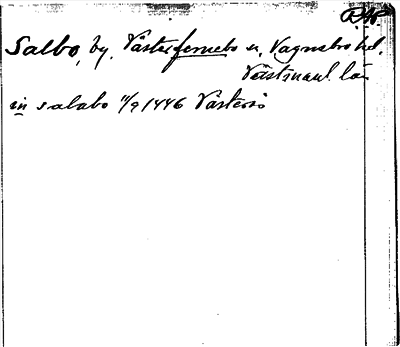 Salbo, by, Västerfernebo sn, Vagnsbro hd.
Västmanl. län
in salabo 11/9 1446 Västerås